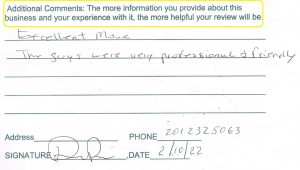 Additional Comments: The more information you provide about this
business and your experience with it, the more helpful your review will be.
Excellent Move
The guys were very professional & friendly
Address PHONE 2012325063
SIGNATURE DATE 2/10/22